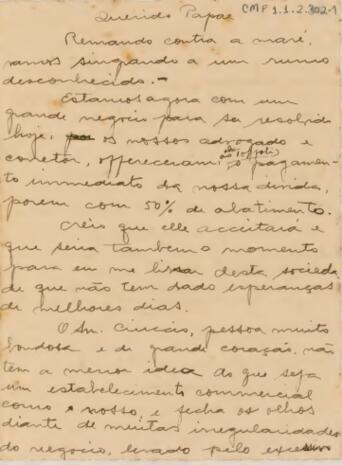 CMP 1.1.2.302-1
Querido Papae
Remando contra a maré,
vamos singrando a um rumo
desconhecido.-
Estamos agora com um
grande negocio para ser resolvido
hoje, os nossos advogado e
corretor, offereceram o pagamen-
to immediato da nossa divida,
porem com 50% de abatimento.
Creio que elle acceitará e
que seria tambem o momento
para eu me livrar desta socieda-
de que não tem dado esperanças
de melhores dias.
O Sn. pessoa muito
bondosa e de grande coração não
tem a menor idea do que seja
um estabelecimento commercial
como o nosso, e fecha os olhos
diante de muitas irregularidades
do negocio, levado pelo